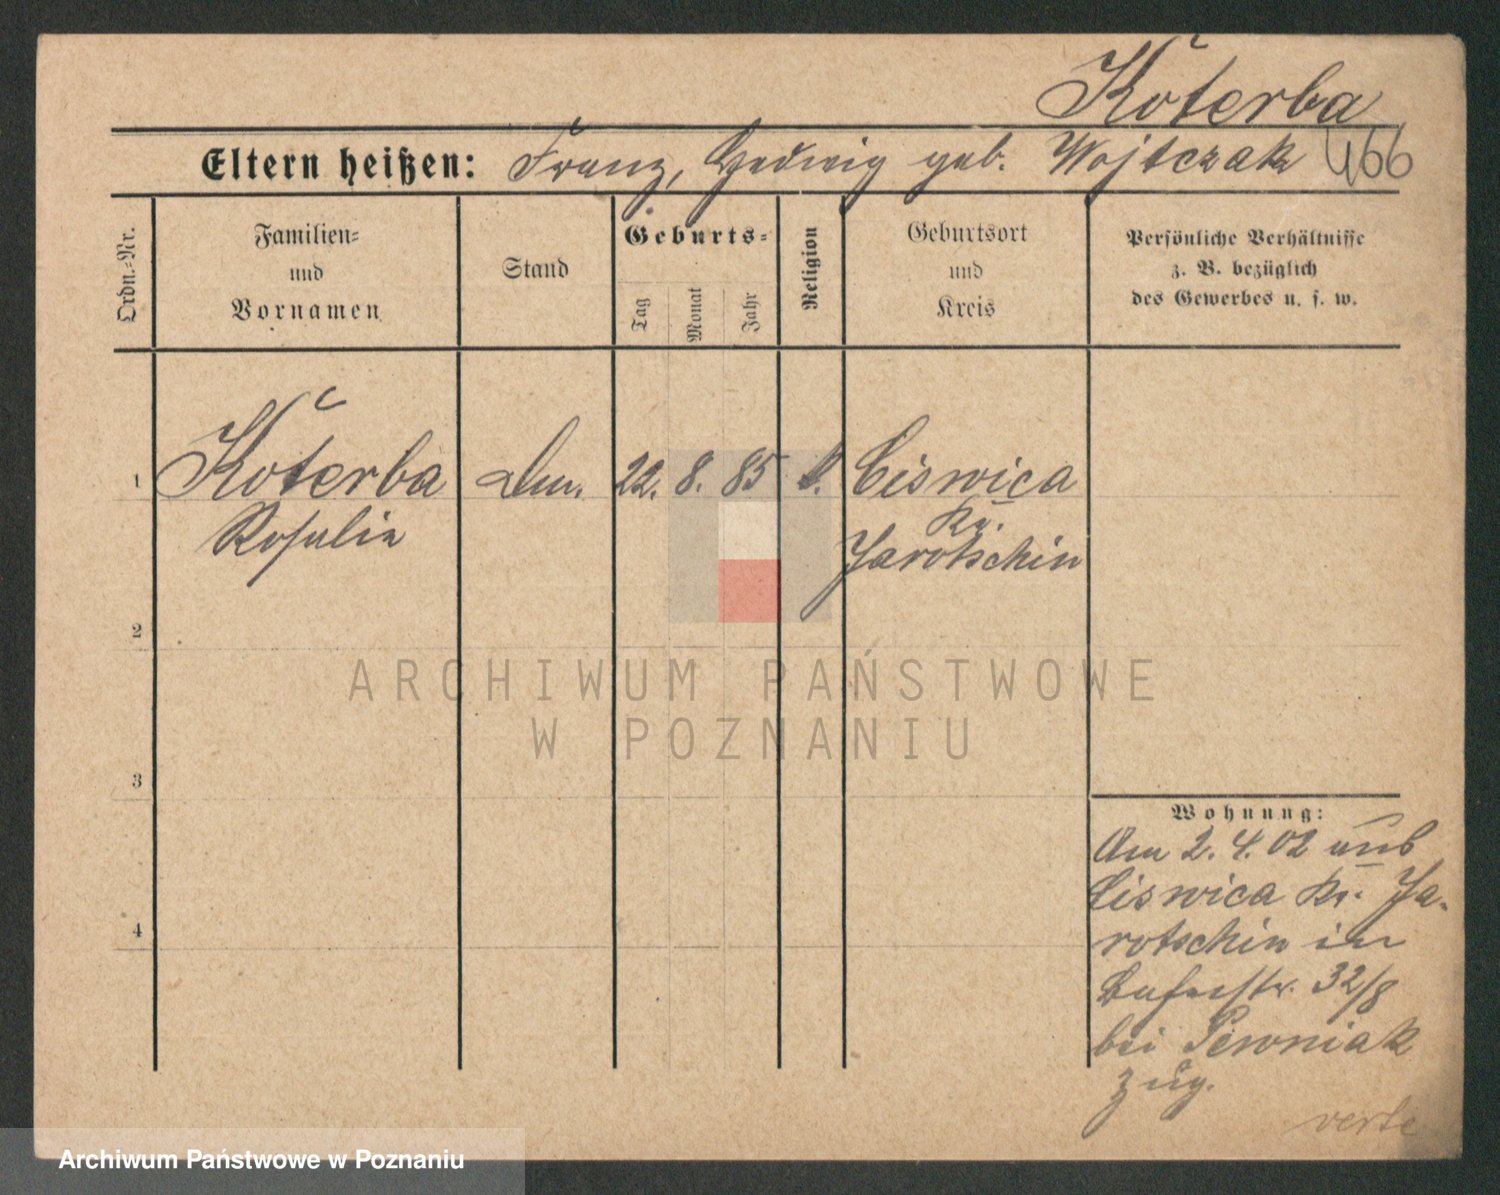 Koterba
Eltern heißen: Franz, Hedwig geb. Wojtczak 466
Ordn.-Nr.
Familien-
und
Vornamen
Stand
Geburts-
Tag
Monat
Jahr
Religion
Geburtsort
und
Kreis
Persönliche Verhältnisse
z. B. bezüglich
des Gewerbes u. s. w.
1 Koterba 22. 8. 85 k. Ciswica
Rosalie Kr.
Jarotschin
2
3
4
ARCHIWUM PAŃSTWOWE
W POZNANIU
Wohnung:
Am 2. 4. 02 aus
Ciswica Kr. Ja-
rotschin in
32/8
bei Pewniak
zug.
verte
Archiwum Państwowe w Poznaniu